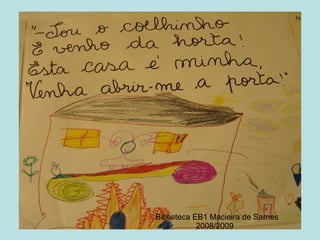 "-Sou o coelhinho
E venho da horta!
Esta casa é minha,
Venha abrir-me a porta!"
Biblioteca EB1 Macieira de Sarnes
2008/2009